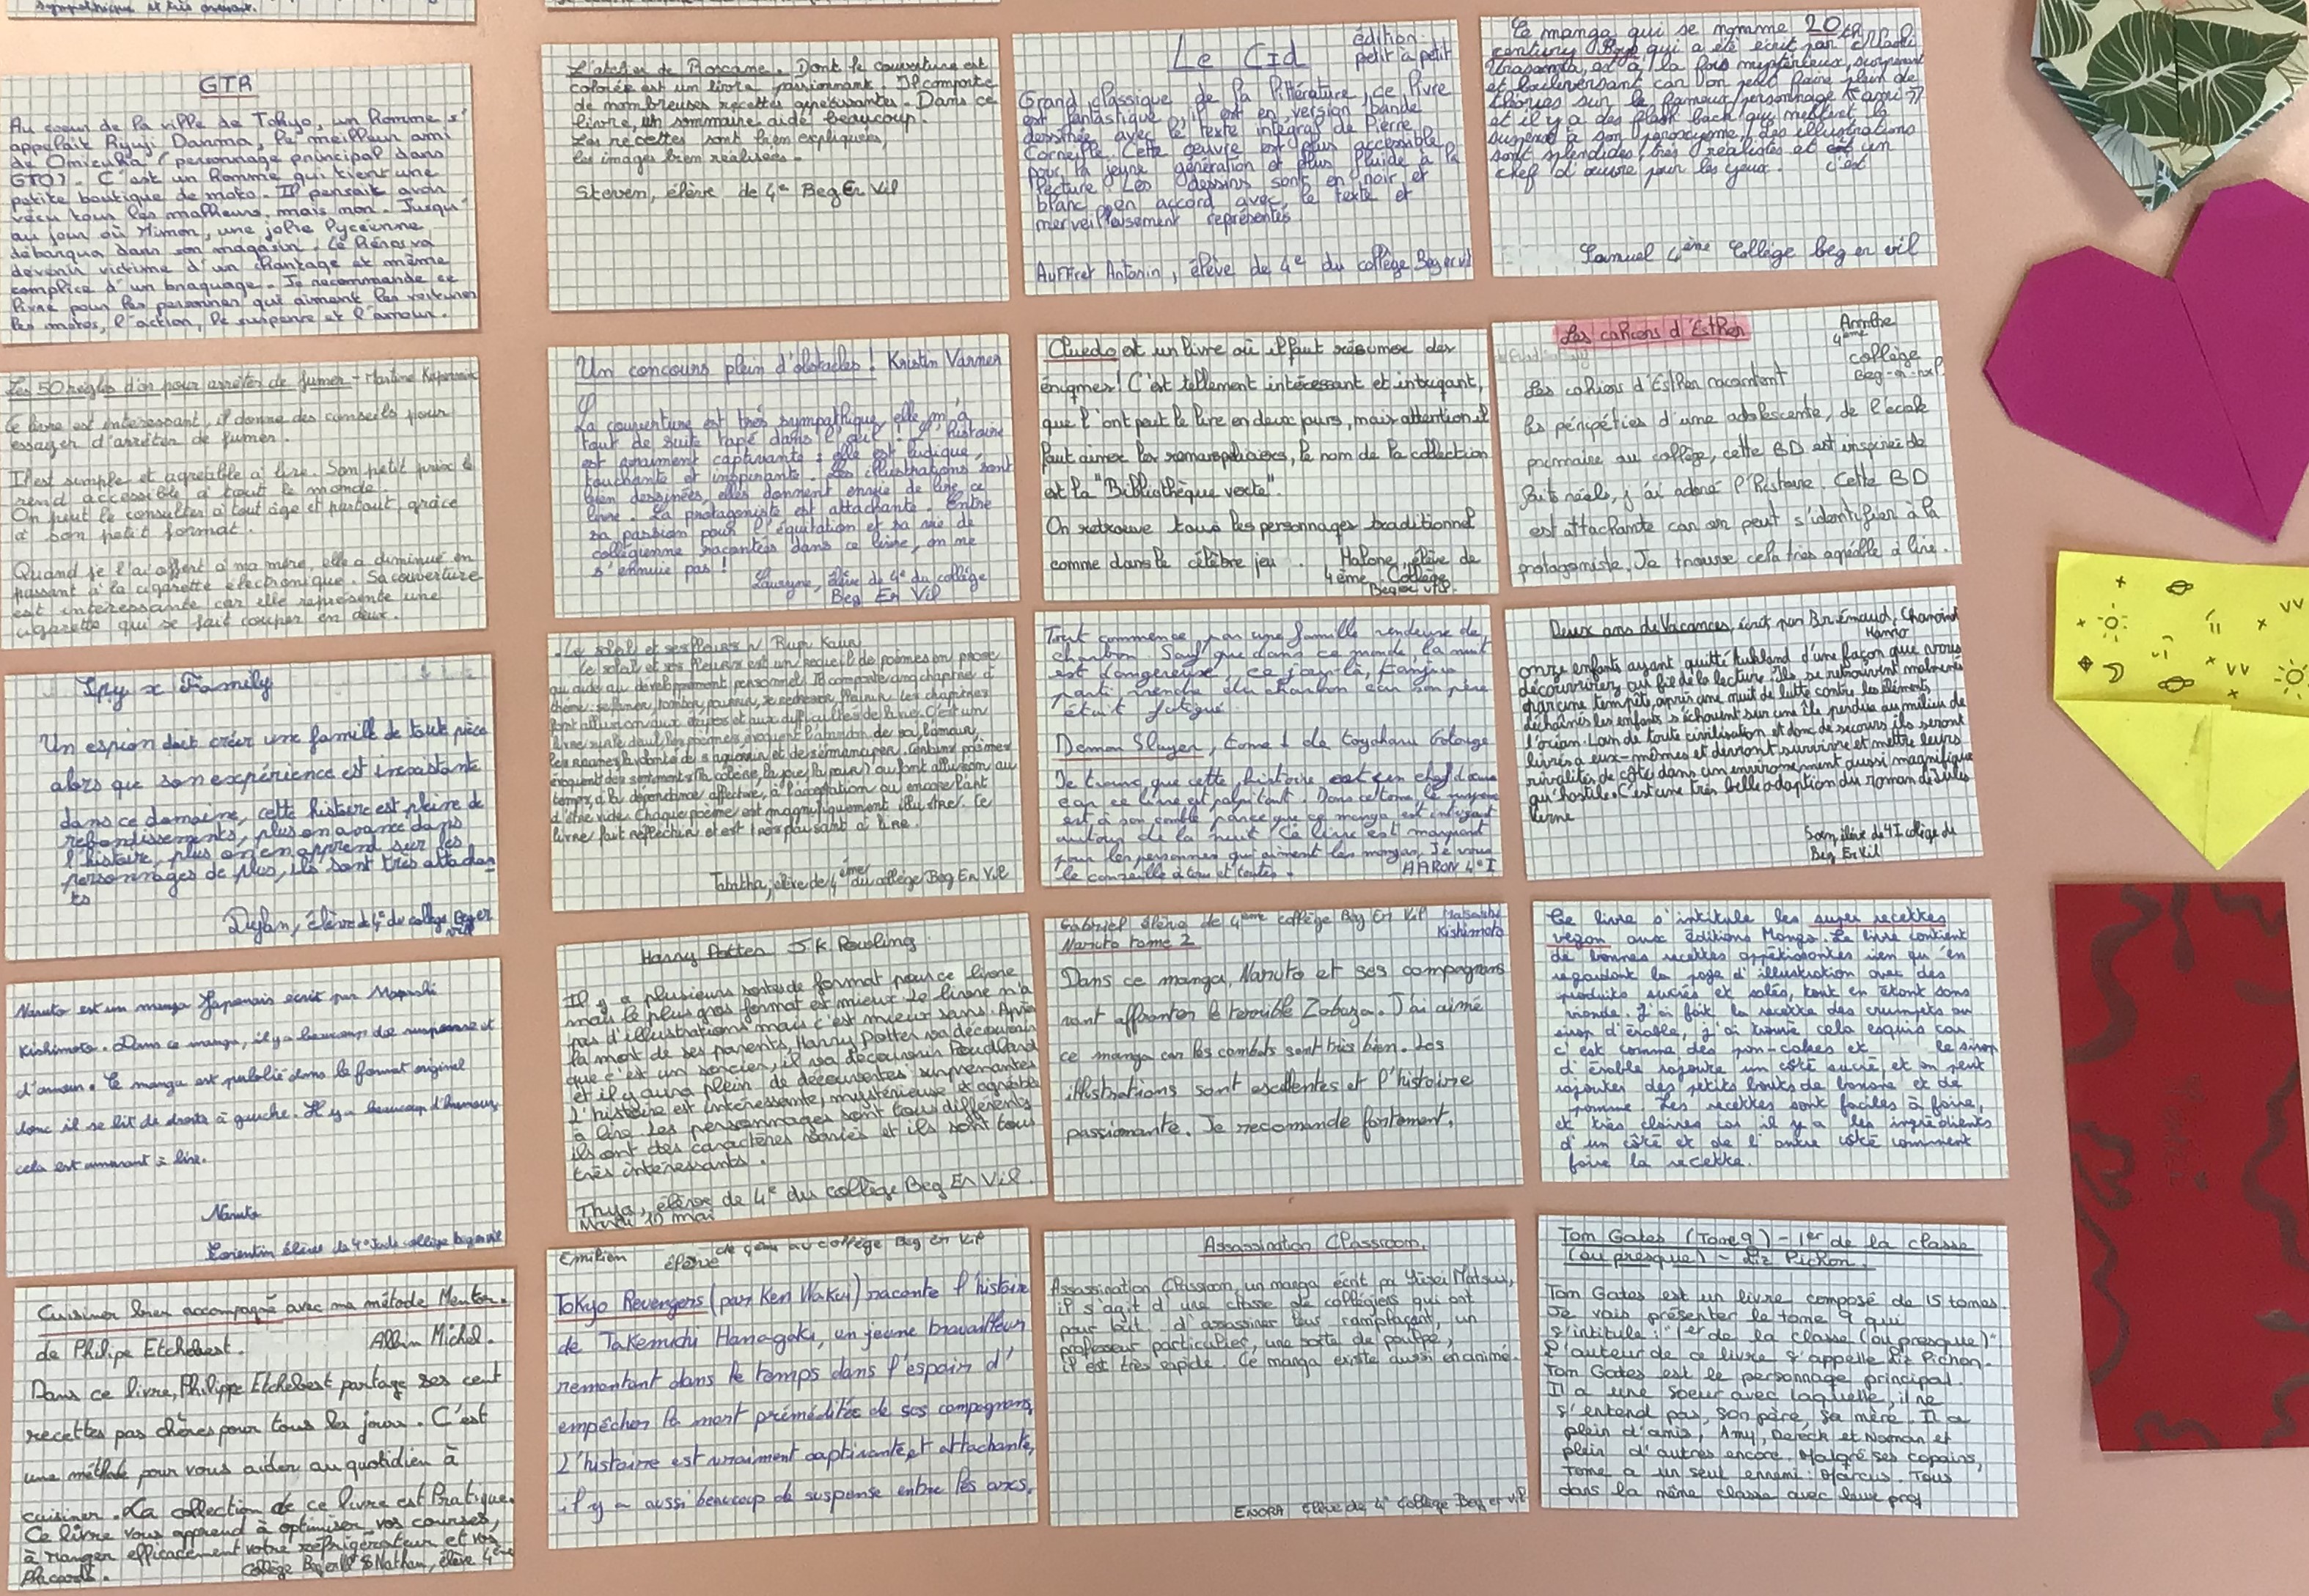 sympathique et très avenant.
GTR
Au coeur de la ville de Tokyo, un homme s'
appelait Ryuji Danma, le meilleur ami
de Onizuka (personnage principal dans
GTO). C'est un homme qui tient une
petite boutique de moto. Il pensait avoir
vécu tous les malheurs, mais non. Jusqu'
au jour où Mimori, une jolie lycéenne,
débarqua dans son magasin. Le héros va
devenir victime d'un chantage et même
complice d'un braquage. Je recommande ce
livre pour les personnes qui aiment les voitures
les motos, l'action, le suspense et l'amour.
Les 50 règles d'or pour arrêter de fumer - Martine
Ce livre est intéressant, il donne des conseils pour
essayer d'arrêter de fumer.
Il est simple et agréable à lire. Son petit prix le
rend accessible à tout le monde.
On peut le consulter à tout âge et partout, grâce
à son petit format.
Quand je l'ai offert à ma mère, elle a diminué en
passant à la cigarette électronique. Sa couverture
est intéressante car elle représente une
cigarette qui se fait couper en deux.
Spy x Family
Un espion doit créer une famille de toute pièce
alors que son expérience est inexistante
dans ce domaine, cette histoire est pleine de
rebondissements, plus on avance dans
l'histoire, plus on en apprend sur les
personnages de plus, ils sont très attachan
ts
Dylan, élève de 4e du collège Beg er
vil
Naruto est un manga Japonais écrit par Masashi
Kishimoto. Dans ce manga, il y a beaucoup de suspense et
d'amour. Ce manga est publié dans le format original
donc il se lit de droite à gauche. Il y a beaucoup d'humour
cela est amusant à lire.
Naruto
Corentin élève de 4e collège beg er vil
Cuisiner bien accompagné avec ma métode Mentor.
de Philipe Etchebest. Albin Michel.
Dans ce livre, Philippe Etchebest partage ses cent
recettes pas chères pour tous les jours. C'est
une méthode pour vous aider au quotidien à
cuisiner. La collection de ce livre est Pratique.
Ce livre vous apprend à optimiser vos courses,
à ranger efficacement votre réfrigérateur et vos
placards. Collège Beg er Vil Nathan, élève 4ème
L'atelier de Roxane. Dont la couverture est
colorée est un livre passionnant. Il comporte
de nombreuses recettes Dans ce
livre, un sommaire aide beaucoup.
Les recettes sont bien expliquées,
les images bien réalisées.
Steven, élève de 4e Beg Er Vil
Un concours plein d'obstacles ! Kristin Varner
La couverture est très sympathique, elle m'a
tout de suite tapé dans l'œil. L'histoire
est vraiment captivante : elle est ludique,
touchante et inspirante. Les illustrations sont
bien dessinées, elles donnent envie de lire ce
livre. La protagoniste est attachante. Entre
sa passion pour l'équitation et sa vie de
collégienne racontées dans ce livre, on ne
s'ennuie pas !
Lauryne, élève de 4e du collège
Beg En Vil
Le soleil et ses fleurs Rupi Kaur
Le soleil et ses fleurs est un recueil de poèmes en prose
qui aide au développement personnel. Il comporte cinq chapitres à
thème: se faner, tomber, pourrir, se redresser, fleurir. Les chapitres
font allusion aux étapes et aux difficultés de la vie. C'est un
livre sur le deuil, les poèmes évoquent l'abandon de soi, l'amour,
les racines, la volonté de s'aguerrir et de s'émanciper. Certains poèmes
évoquent des sentiments (la colère, la joie, la peur) ou font allusion au
temps, à la dépendance affective, à l'acceptation ou encore l'art
d'être vide. Chaque poème est magnifiquement illustré. Ce
livre fait réfléchir et est très apaisant à lire.
Tabatha, élève de 4ème du collège Beg En Vil
Harry Potter J.K. Rowling
Il y a plusieurs sortes de format pour ce livre
mais le plus gros format est mieux. Le livre n'a
pas d'illustrations mais c'est mieux sans. Après
la mort de ses parents, Harry Potter va découvrir
que c'est un sorcier, il va découvrir Poudlard
et il y aura plein de découvertes surprenantes
L'histoire est intéressante, mystérieuse et agréable
à lire. Les personnages sont tous différents
ils ont des caractères variés et ils sont tous
très intéressants.
Thya, élève de 4e du collège Beg En Vil.
Mardi 10 mai
Emilien élève de 4ème au collège Beg en Vil
Tokyo Revengers (par Ken Wakui) raconte l'histoire
de Takemichi Hanagaki, un jeune travailleur
remontant dans le temps dans l'espoir d'
empêcher la mort préméditée de ses compagnons,
L'histoire est vraiment captivante, et attachante,
il y a aussi beaucoup de suspense entre les arcs.
Le Cid édition:
petit à petit
Grand classique de la littérature, ce livre
est fantastique, il est en version bande
dessinée avec le texte intégral de Pierre
Corneille. Cette œuvre est plus accessible
pour la jeune génération et plus fluide à la
lecture. Les dessins sont en noir et
blanc, en accord avec le texte et
merveilleusement représentés
Auffret Antonin, élève de 4e du collège Beg er vil
Cluedo est un livre où il faut résumer des
énigmes! C'est tellement intéressant et intrigant,
que l'ont peut le lire en deux jours, mais attention il
faut aimer les romans policiers, le nom de la collection
est la "Bibliothèque verte".
On retrouve tous les personnages traditionnel
comme dans le célèbre jeu. Malone, élève de
4ème Collège
Beg er vil.
Tout commence par une famille vendeuse de
charbon. Sauf que dans ce monde la nuit
est dangereuse, ce jour-là, Tanjiro
parti vendre du charbon car son père
était fatigué.
Demon Slayer, tome 1 de Koyoharu Gotouge
Je trouve que cette histoire est un chef d'œuvre
car ce livre est palpitant. Dans ce tome le suspense
est à son comble parce que ce manga est intrigant
autour de la nuit. Ce livre est marquant
pour les personnes qui aiment les mangas. Je vous
le conseille à tous et toutes. AARON 4e I
Gabriel élève de 4ème collège Beg En Vil Masashi
Naruto tome 2 Kishimoto
Dans ce manga, Naruto et ses compagnons
vont affronter le terrible Zabuza. J'ai aimé
ce manga car les combats sont très bien. Les
illustrations sont excellentes et l'histoire
passionante. Je recomande fortement.
Assassination Classroom.
Assassination Classroom, un manga écrit par Yusei Matsui,
il s'agit d'une classe de collégiers qui ont
pour but d'assassiner leur remplaçant, un
professeur particulier, une sorte de poulpe,
il est très rapide. Ce manga existe aussi en animé.
ENORA élève de 4e Collège Beg er vil
Ce manga qui se nomme 20th
century Boys qui a été écrit par Naoki
Urasawa, est à la fois mystérieux, surprenant
et bouleversant car on peut faire plein de
théories sur le fameux personnage "Kami"
et il y a des flash back qui mettent le
suspens à son paroxysme, des illustrations
sont splendides, très réalistes et c'est un
chef d'œuvre pour les yeux.
Samuel 4ème Collège beg er vil
Les cahiers d'Esther
4ème
collège
Les cahiers d'Esther racontent
les péripéties d'une adolescente, de l'école
primaire au collège, cette BD est inspirée de
faits réels, j'ai adoré l'histoire. Cette BD
est attachante car on peut s'identifier à la
protagoniste. Je trouve cela très agréable à lire.
Deux ans de Vacances, écrit par Brrémaud, Chanoinat
Hamo
onze enfants ayant quitté Auckland d'une façon que vous
découvrirez au fil de la lecture. Ils se retrouvent malmenés
par une tempête, après une nuit de lutte contre les éléments,
déchaînés les enfants s'échouent sur une île perdue au milieu de
l'océan. Loin de toute civilisation et donc de secours ils seront
livrés à eux-mêmes et devront survivre et mettre leurs
rivalités de côté dans un environement aussi magnifique
qu'hostile. C'est une très belle adaption du roman de Jules
Verne
élève de 4I collège de
Beg Er Vil
Ce livre s'intitule les super recettes
vegan aux éditions Mango. Le livre contient
de bonnes recettes appétissantes rien qu'en
regardant la page d'illustration avec des
produits sucrés et salés, tout en étant sans
viande. J'ai fait la recette des crumpets au
sirop d'érable, j'ai trouvé cela exquis car
c'est comme des pan-cakes et le sirop
d'érable rajoute un côté sucré, et on peut
rajouter des petits bouts de banane et de
pomme. Les recettes sont faciles à faire,
et très claires car il y a les ingrédients
d'un côté et de l'autre côté comment
faire la recette.
Tom Gates (Tome 9) - 1er de la classe
(ou presque) - Liz Pichon.
Tom Gates est un livre composé de 15 tomes.
Je vais présenter le tome 9 qui
s'intitule: "1er de la classe (ou presque)"
L'auteur de ce livre s'appelle Liz Pichon.
Tom Gates est le personnage principal.
Il a une soeur avec laquelle, il ne
s'entend pas, son père, sa mère. Il a
plein d'amis, Amy, Dereck et Norman et
plein d'autres encore. Malgré ses copains,
Tome a un seul ennemi: Marcus. Tous
dans la même classe avec leur prof